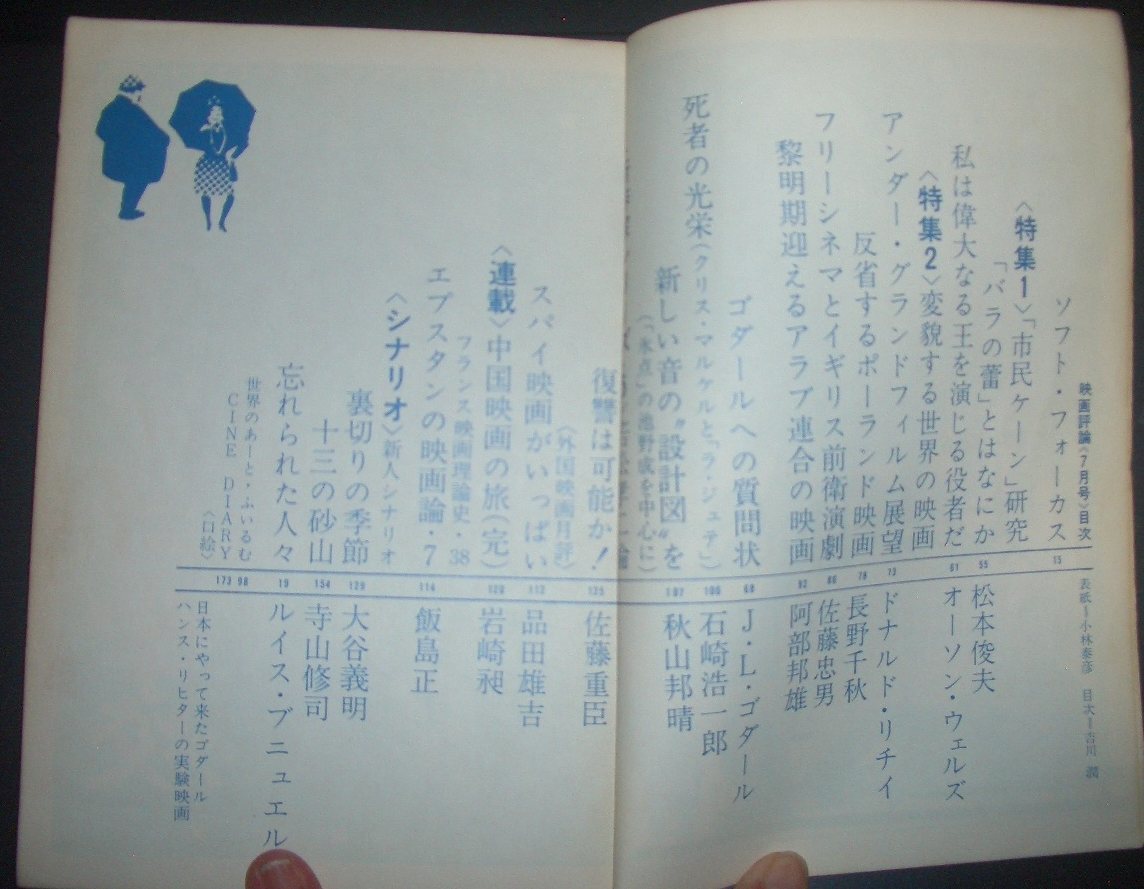 映画評論〈7月号〉目次
表紙=小林泰彦 目次=古川 潤
ソフト・フォーカス 15
〈特集1〉「市民ケーン」研究
「バラの蕾」とはなにか 55 松本俊夫
私は偉大なる王を演じる役者だ 61 オーソン・ウェルズ
〈特集2〉変貌する世界の映画
アンダー・グランドフィルム展望 73 ドナルド・リチイ
反省するポーランド映画 78 長野千秋
フリーシネマとイギリス前衛演劇 86 佐藤忠男
黎明期迎えるアラブ連合の映画 92 阿部邦雄
ゴダールへの質問状 68 J・L・ゴダール
死者の光栄(クリス・マルケルと「ラ・ジュテ」) 100 石崎浩一郎
新しい音の"設計図"を 107 秋山邦晴
の池野成を中心に)
復讐は可能か! 125 佐藤重臣
(外国映画月評)
スパイ映画がいっぱい 112 品田雄吉
〈連載〉中国映画の旅(完) 120 岩崎昶
フランス映画理論史・38
エプスタンの映画論・7 114 飯島正
〈シナリオ〉新人シナリオ
裏切りの季節 129 大谷義明
十三の砂山 154 寺山修司
忘れられた人々 19 ルイス・ブニュエル
世界のあーと・ふいるむ 98
CINE DIARY 173
〈口絵〉
日本にやって来たゴダール
ハンス・リヒターの実験映画